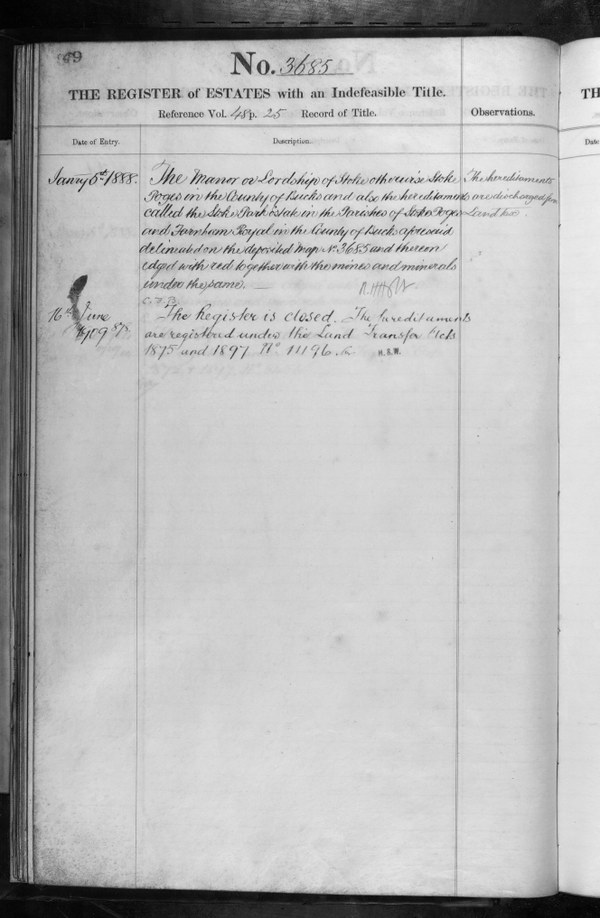 No. 3685
THE REGISTER of ESTATES with an Indefeasible Title.
Reference Vol. 48 p. 25 Record of Title.
Observations.
Date of Entry.
Description.
January 5th 1888.
The Manor or Lordship of Stoke otherwise Stoke
Poges in the County of Bucks and also the hereditaments
called the Stoke Park Estate in the Parishes of Stoke Poges
and Farnham Royal in the County of Bucks aforesaid
delineated on the deposited Map No. 3685 and thereon
edged with red together with the mines and minerals
under the same.
The hereditaments
are discharged from
Land tax.
16th June
1909
The Register is closed. The hereditaments
are registered under the Land Transfer Acts
1875 and 1897 No. 11196
H.S.W.
TH
Date